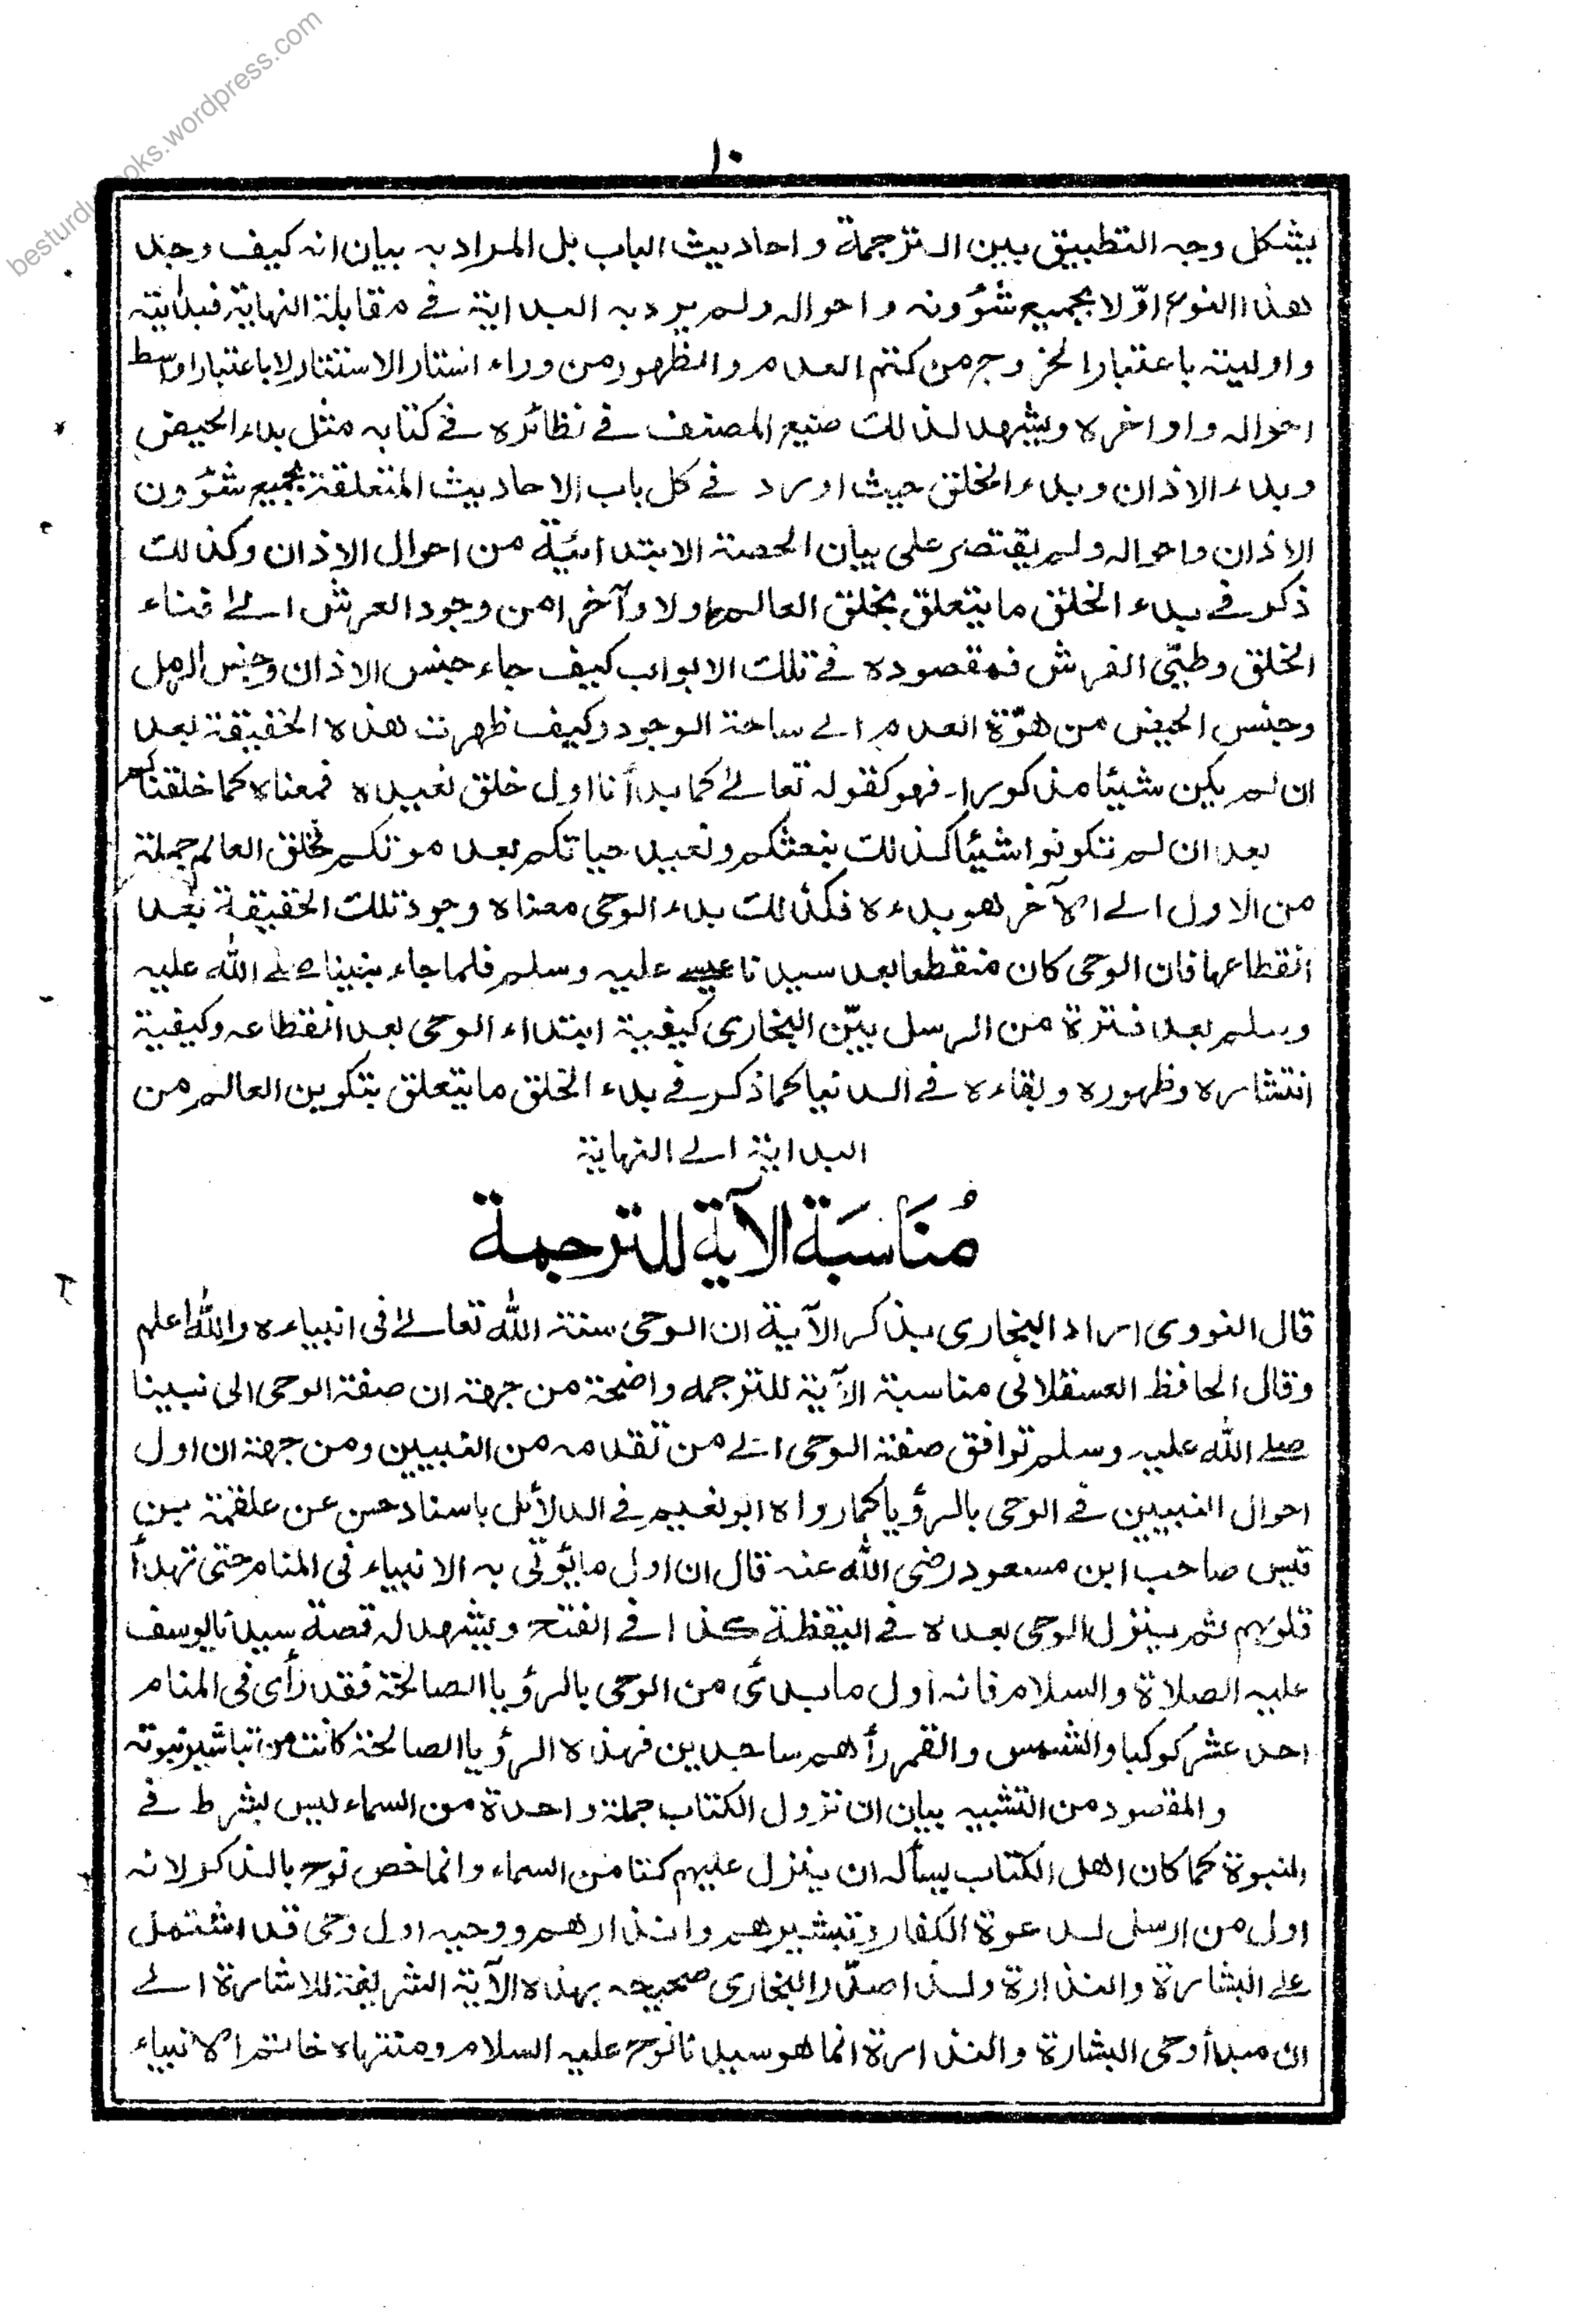 besturdubooks.wordpress.com
١٠
يشكل وجه التطبيق بين الترجمة واحاديث الباب بل المراد به بيان انه كيف وجد
هذا النوع اوّلا بجميع شؤونه واحواله ولم يرد به البداية في مقابلة النهاية فبدايته
واوليته باعتبار الخروج من كتم العدم والظهور من وراء استار الاستتار لا باعتبار اوسط
احواله واواخره ويشهد لذلك صنيع المصنف في نظائره في كتابه مثل بدء الحيض
وبدء الاذان وبدء الخلق حيث اورد في كل باب الاحاديث المتعلقة بجميع شؤون
الاذان واحواله ولم يقتصر على بيان الحصة الابتدائية من احوال الاذان وكذلك
ذكر في بدء الخلق ما يتعلق بخلق العالم اولا وآخرا من وجود العرش الى فناء
الخلق وطيّ الفرش فمقصوده في تلك الابواب كيف جاء جنس الاذان وجنس الرمل
وجنس الحيض من هوّة العدم الى ساحة الوجود وكيف ظهرت هذه الحقيقة بعد
ان لم يكن شيئا مذكورا۔ فهو كقوله تعالى كما بدأنا اول خلق نعيده فمعناه كما خلقناكم
بعد ان لم تكونوا شيئا كذلك نبعثكم ونعيد حياتكم بعد موتكم فخلق العالم جملة
من الاول الى الآخر هو بدءه فكذلك بدء الوحى معناه وجود تلك الحقيقة بعد
انقطاعها فان الوحى كان منقطعا بعد سيدنا عيسى عليه وسلم فلما جاء نبينا صلى الله عليه
وسلم بعد فترة من الرسل بيّن البخارى كيفية ابتداء الوحى بعد انقطاعه وكيفية
انتشاره وظهوره وبقاءه في الدنيا كما ذكر في بدء الخلق ما يتعلق بتكوين العالم من
البداية الى النهاية
مُنَاسَبَة الآية للترجمة
قال النووى اراد البخارى بذكر الآية ان الوحى سنة الله تعالى فى انبياءه والله اعلم
وقال الحافظ العسقلانى مناسبة الآية للترجمه واضحة من جهة ان صفة الوحى الى نبينا
صلى الله عليه وسلم توافق صفة الوحى الى من تقدمه من النبيين ومن جهة ان اول
احوال النبيين في الوحى بالرؤيا كما رواه ابو نعيم في الدلائل باسناد حسن عن علقمة بن
قيس صاحب ابن مسعود رضى الله عنه قال ان اول ما يؤتى به الانبياء فى المنام حتى تهدأ
قلوبهم ثم ينزل الوحى بعده في اليقظة كذا في الفتح ويشهد له قصة سيدنا يوسف
عليه الصلاة والسلام فانه اول ما بدئ من الوحى بالرؤيا الصالحة فقد رأى فى المنام
احد عشر كوكبا والشمس والقمر رأهم ساجدين فهذه الرؤيا الصالحة كانت من تباشير نبوته
والمقصود من التشبيه بيان ان نزول الكتاب جملة واحدة من السماء ليس بشرط في
النبوة كما كان اهل الكتاب يسأله ان ينزل عليهم كتا من السماء وانما خص نوح بالذكر لانه
اول من ارسل لدعوة الكفار وتبشيرهم وانذارهم ووحيه اول وحى قد اشتمل
على البشارة والنذارة ولذا صدّر البخارى صحيحه بهذه الآية الشريفة للاشارة الى
ان مبدأ وحى البشارة والنذارة انما هو سيدنا نوح عليه السلام ومنتهاه خاتم الانبياء